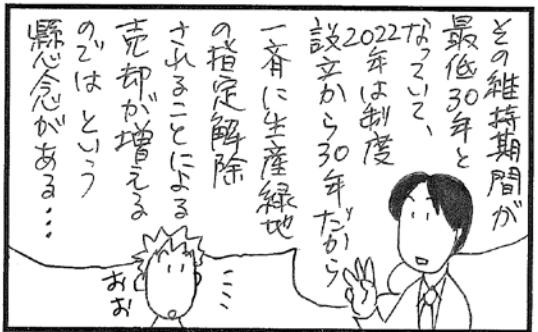 その維持期間が
最低30年と
なっていて、
2022年は制度
設立から30年だから
一斉に生産緑地
の指定解除
されることによる
売却が増える
のでは という
懸念がある…
おお